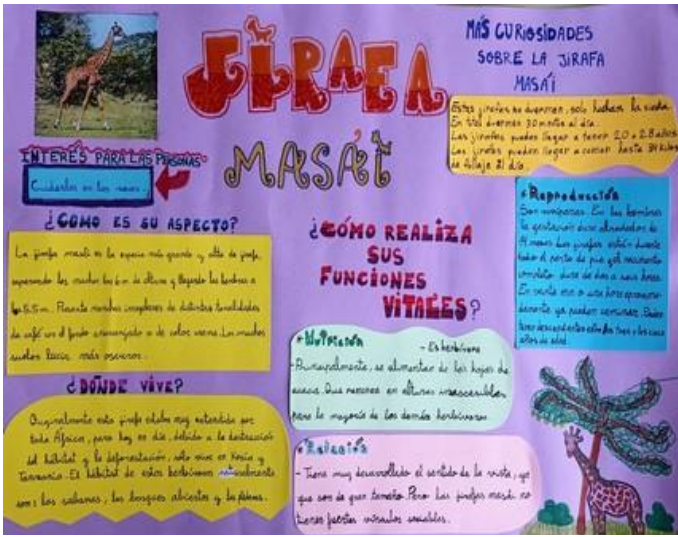 JIRAFA
MASAI
INTERÉS PARA LAS PERSONAS
Cuidarlas en las
¿COMO ES SU ASPECTO?
La jirafa masái es la especie más grande y alta de jirafa,
superando los machos los 6 m de altura y llegando las hembras a
5,5 m. Presenta manchas irregulares de distintas tonalidades
de café en el fondo anaranjado o de color crema. Los machos
suelen lucir más oscuros.
¿DONDE VIVE?
Originalmente esta jirafa estaba muy extendida por
toda África, pero hoy en día, debido a la destrucción
del hábitat y la deforestación, sólo vive en Kenia y
Tanzania. El hábitat de estos herbívoros
son: las sabanas, los bosques abiertos y
¿CÓMO REALIZA
SUS
FUNCIONES
VITALES?
Nutrición
- Es herbívora
- Principalmente, se alimentan de las hojas de
acacia. Que crecen en alturas inaccesibles
para la mayoría de los demás herbívoros.
Relación
- Tiene muy desarrollado el sentido de la vista, ya
que son de gran tamaño. Pero las jirafas masái no
tienen fuertes vínculos sociales.
MÁS CURIOSIDADES
SOBRE LA JIRAFA
MASAÍ
Estas jirafas no duermen, solo la
En total duermen 30 minutos al día.
Las jirafas pueden llegar a tener 20 o 28 años.
Las jirafas pueden llegar a comer hasta 34 kilos
de follaje al día.
Reproducción
Son vivíparas. En las hembras
la gestación dura alrededor de
meses. Las jirafas están durante
todo el parto de pie y el nacimiento
completo dura de dos a seis horas.
En veinte min o una hora aproxima-
damente ya pueden caminar. Pueden
tener descendientes entre los tres y los cinco
años de edad.